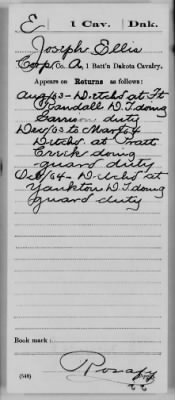 E. 1 Cav. Dak.
Joseph Ellis
Corp, Co. A, 1 Batt'n Dakota Cavalry.
Appears on Returns as follows:
Aug/63 - Detchd at Ft
Randall D.T. doing
Garrison duty
Dec/63 to Mar/64
Detchd. at Pratt
Crick doing
guard duty
Oct/64 - Detchd at
Yankton D.T. doing
guard duty
Book mark:
(548)